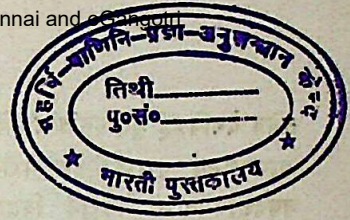 nnai and eGangotri
महर्षि-पाणिनि- -अनुसन्धान केन्द्र
तिथी
पु०सं०
★ भारती पुस्तकालय ★